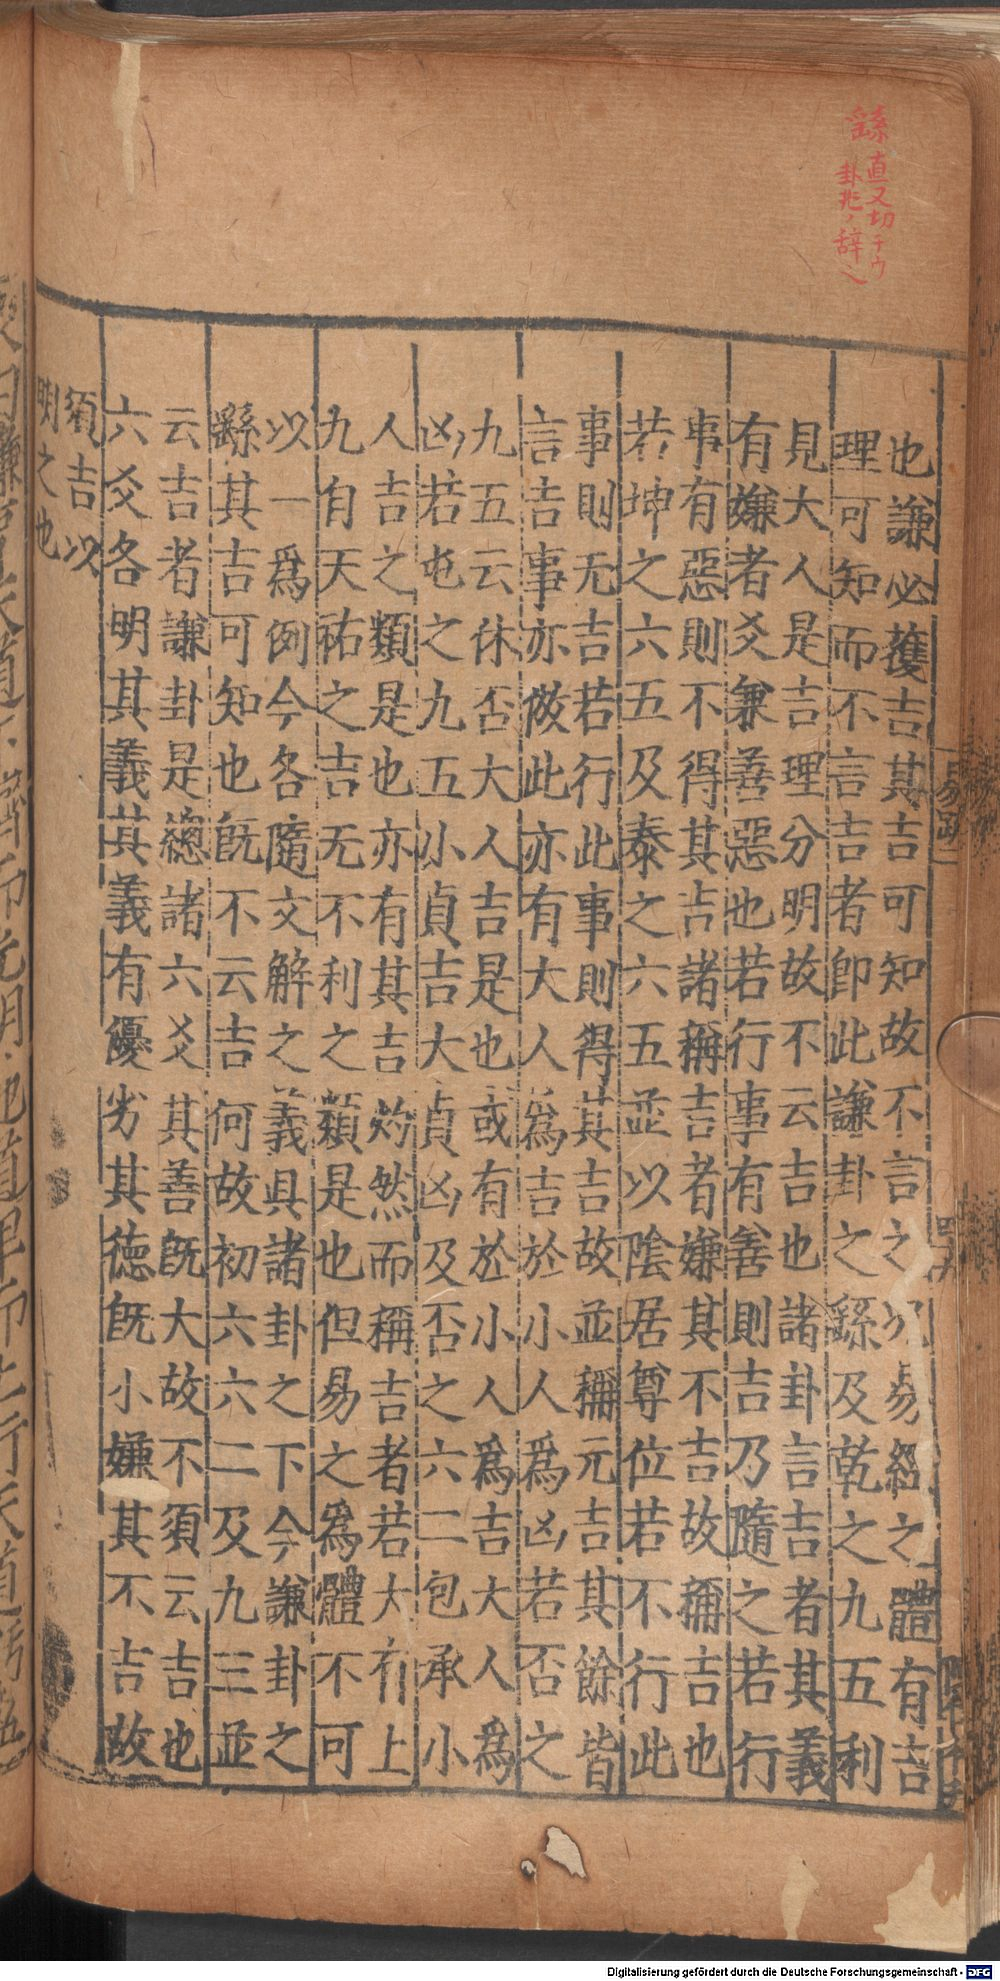 繇 直又切チウ
卦兆ノ辞
也謙必獲吉其吉可知故不言之況易經之體有吉
理可知而不言吉者即此謙卦之繇及乾之九五利
見大人是吉理分明故不云吉也諸卦言吉者其義
有嫌者爻兼善惡也若行事有善則吉乃隨之若行
事有惡則不得其吉諸稱吉者嫌其不吉故稱吉也
若坤之六五及泰之六五並以陰居尊位若不行此
事則无吉若行此事則得其吉故並稱元吉其餘皆
言吉事亦倣此亦有大人為吉於小人為凶若否之
九五云休否大人吉是也或有於小人為吉大人為
凶若屯之九五小貞吉大貞凶及否之六二包承小
人吉之類是也亦有其吉灼然而稱吉者若大有上
九自天祐之吉无不利之類是也但易之為體不可
以一為例今各隨文解之義具諸卦之下今謙卦之
繇其吉可知也旣不云吉何故初六六二及九三並
云吉者謙卦是總諸六爻其善旣大故不須云吉也
六爻各明其義其義有優劣其德旣小嫌其不吉故
須吉以
明之也
易疏二
Digitalisierung gefördert durch die Deutsche Forschungsgemeinschaft - DFG